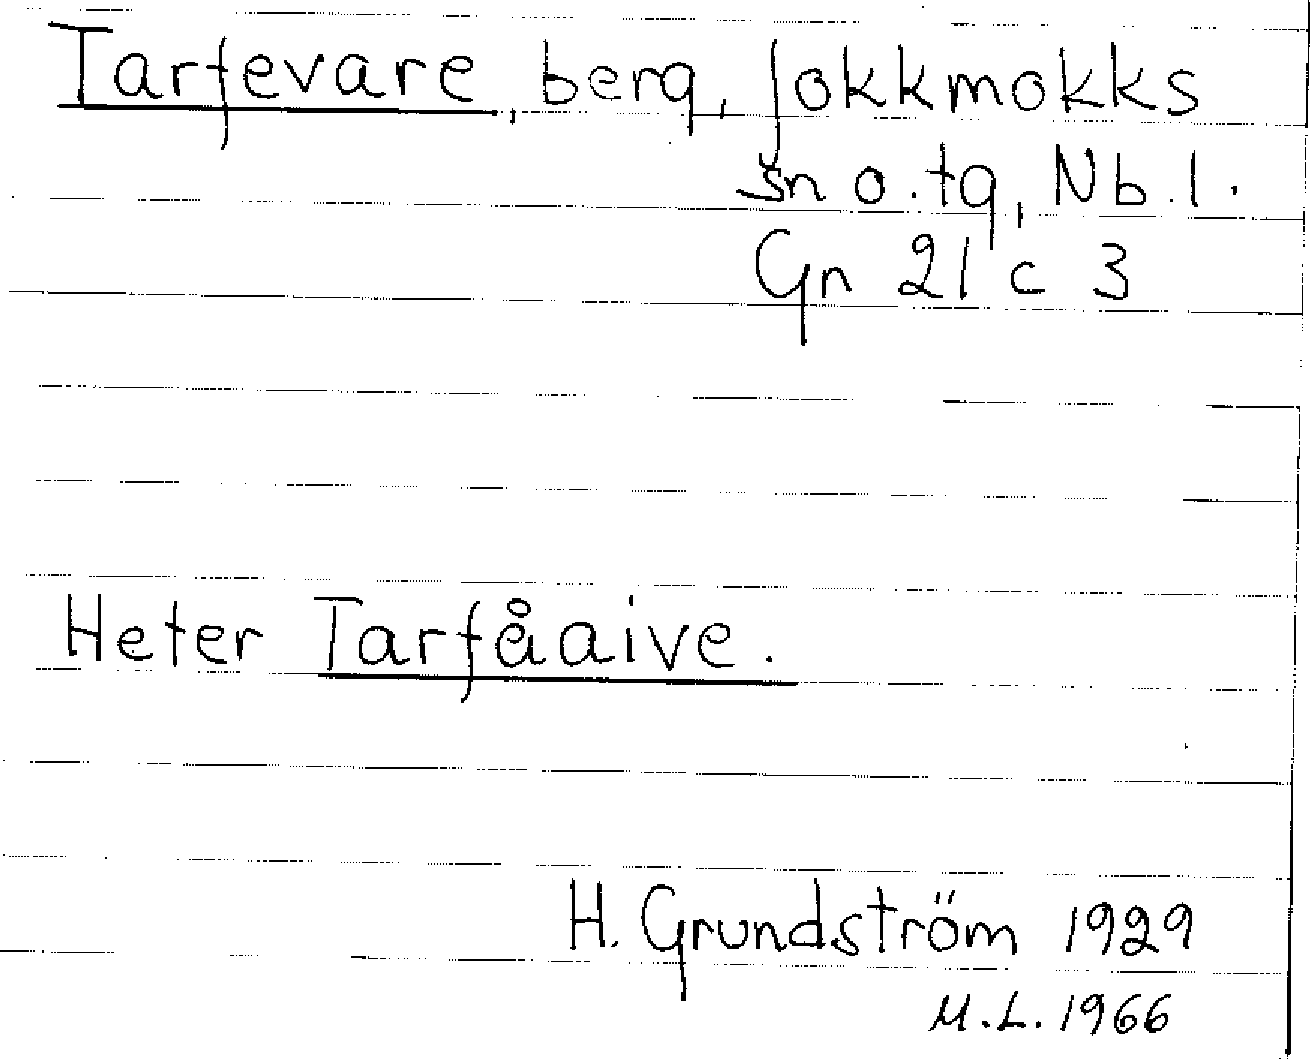 Tarfevare, berg, Jokkmokks
sn o. tg, Nb. l.
Gn 21 c 3
Heter Tarfåaive.
H. Grundström 1929
M.L. 1966